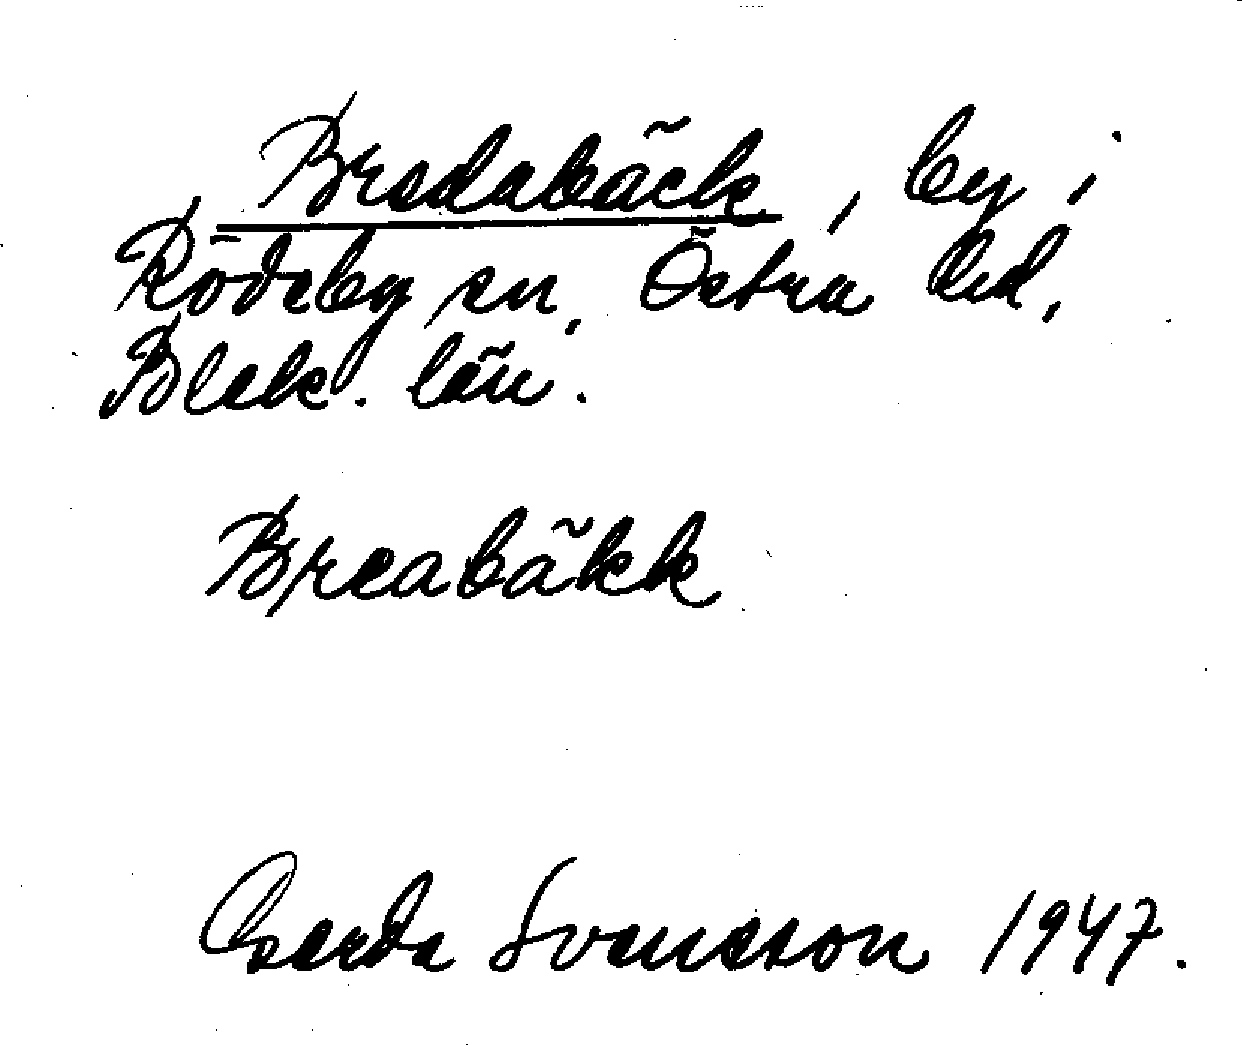 Bredabäck, by i
Rödeby sn, Östra hd,
Blek. län.
Breabäkk
Gerda Svensson 1947.